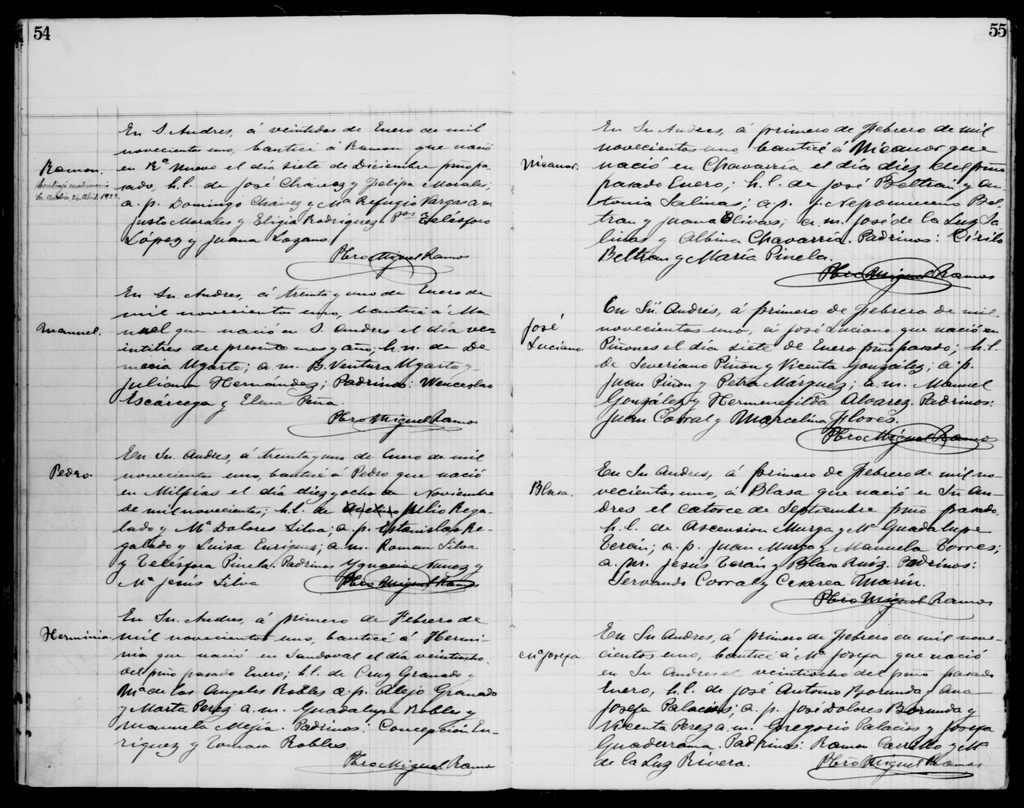 54
Ramon.
En S. Andres, á veintidos de Enero de mil
novecientos uno, bauticé á Ramon que nació
en Rº Nuevo el día siete de Diciembre pmo pa-
sado, h. l. de José Chavez y Felipa Morales;
a. p. Domingo Chavez y Mª Refugio Vargas a. m
Justo Morales y Eligia Rodriguez Pnos Telesforo
López y Juana Lozano
Pbro Miguel Ramos
Manuel.
En Sn. Andres, á treinta y uno de Enero de
mil novecientos uno, bauticé á Ma-
nuel que nació en S. Andres el día ve-
intitres del presente mes y año; h. n. de De-
mecia Ugarte; a. m. B. Ventura Ugarte y
Juliana Hernández; Padrinos: Wenceslao
Escárcega y Elena Peña.
Pbro Miguel Ramos
Pedro.
En Sn. Andres, á treinta y uno de Enero de mil
novecientos uno, bauticé á Pedro que nació
en Milpias el día diez y ocho de Noviembre
de mil novecientos; h. l. de Julio Rega-
lado y Mª Dolores Silva; a. p. Estanislao Re-
galado y Luisa Enriquez; a. m. Roman Silva
y Telesfora Pinela. Padrinos Ygnacio Nunez y
Mª Jesús Silva
Pbro Miguel Ramos
Herminia
En Sn. Andres, á primero de Febrero de
mil novecientos uno, bauticé á Hermi-
nia que nació en Sandoval el día veintiocho
del pmo pasado Enero; h. l. de Cruz Granado y
Mª de los Angeles Robles a. p. Alejo Granado
y Marta Perez a. m. Guadalupe Robles y
Manuela Mejía. Padrinos: Concepción En-
riquez y Tomasa Robles.
Pbro Miguel Ramos
55
Nicanor.
En Sn Andres, á primero de Febrero de mil
novecientos uno bauticé á Nicanor que
nació en Chavarría el día diez del pmo
pasado Enero; h. l. de José Beltran y An-
tonia Salinas; a. p. J. Nepomuceno Bel-
tran y Juana Olivas; a. m. José de la Luz Sa-
linas y Albina Chavarría. Padrinos: Cirilo
Beltran y María Pinela.
Pbro Miguel Ramos
José
Luciano
En Sn. Andrés, á primero de Febrero de mil
novecientos uno, á José Luciano que nació en
Piñones el día siete de Enero pmo pasado; h. l.
de Severiano Piñon y Vicenta González; a. p.
Juan Piñon y Petra Marquez; a. m. Manuel
González y Hermenegilda Alvarez. Padrinos:
Juan Corral y Marcelina Flores.
Pbro Miguel Ramos
Blasa.
En Sn Andres, á primero de Febrero de mil no-
vecientos uno, á Blasa que nació en Sn An-
dres el catorce de Septiembre pmo pasado
h. l. de Ascension Murga y Mª Guadalupe
Terán; a. p. Juan Murga y Manuela Torres;
a. m. Jesus Terán y Blasa Ruiz. Padrinos:
Servando Corral y Cesarea Marin.
Pbro Miguel Ramos
Mª Josefa
En Sn Andres, á primero de Febrero de mil nove-
cientos uno, bauticé á Mª Josefa que nació
en Sn Andres el veintiocho del pmo pasado
Enero, h. l. de José Antonio Borunda y Ana
Josefa Palacios; a. p. José Dolores Borunda y
Vicenta Perez a. m. Gregorio Palacios y Josefa
Guaderrama. Padrinos: Ramon Carrillo y Mª
de la Luz Rivera.
Pbro Miguel Ramos